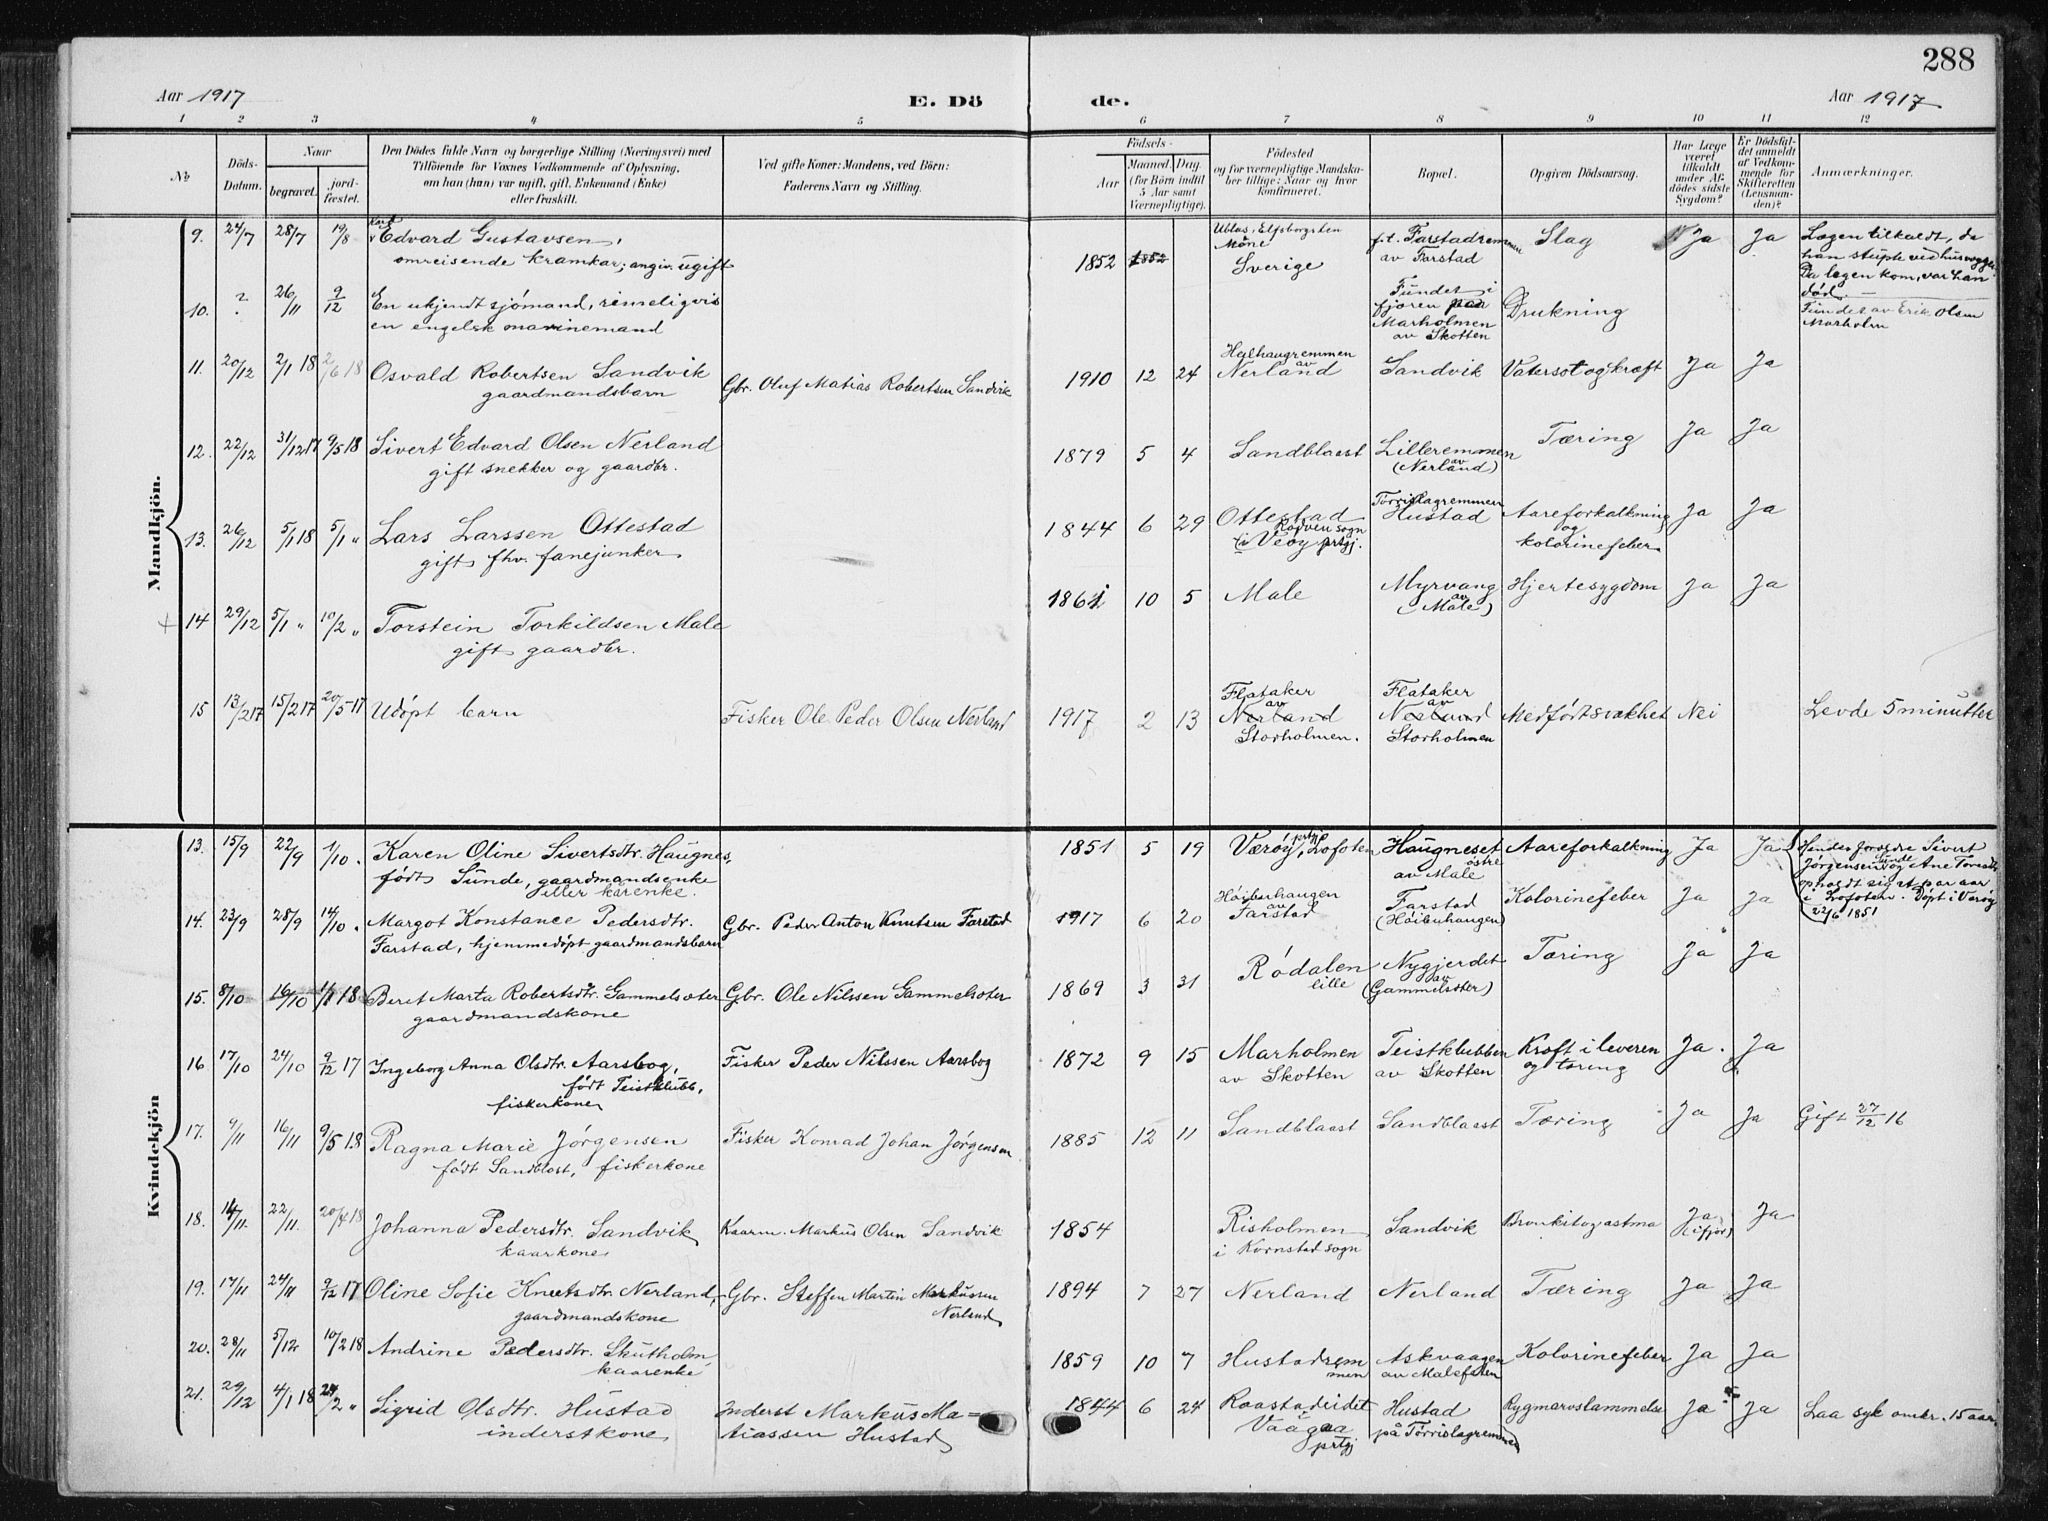 288
Aar 1917 E. Dö de. Aar 1917
1 2 3 4 5 6 7 8 9 10 11 12
№ Döds-Datum. Naar begravet. jord-fæstet. Den Dödes fulde Navn og borgerlige Stilling (Næringsvei) med Tilföiende for Voxnes Vedkommende af Oplysning, om han (hun) var ugift, gift, Enkemand (Enke) eller fraskilt. Ved gifte Koner: Mandens, ved Börn: Faderens Navn og Stilling. Födsels- Aar Maaned. Dag. (for Börn indtil 5 Aar samt Værnepligtige). Födested og for værnepligtige Mandskaber tillige: Naar og hvor konfirmeret. Bopæl. Opgiven Dödsaarsag. Har Læge været tilkaldt under Afdödes sidste Sygdom? Er Dödsfaldet anmeldt af Vedkommende for Skifteretten (Lensmanden)? Anmærkninger.
Mandkjön.
9. 24/7 28/7 19/8 Karl Edvard Gustavsen, 1852 1852 Elfsborgs len Sverige f.t. Farstadremmen av Farstad Slag Ja Ja Lægen tilkaldt, da
omreisende kramkar; angiv. ugift han stupte ved husvæggen. Da lægen kom, var han død.
10. ? 26/11 9/12 En ukjendt sjómand, rimeligvis Fundet i fjæren paa Marholmen av Skotten Drukning Fundet av Erik Olsen Marholm
en engelsk marinemand
11. 20/12 2/1 18 2/6 18 Osvald Robertsen Sandvik Gbr. Oluf Matias Robertsen Sandvik 1910 12 24 Helhaugremmen av Nerland Sandvik Vatersot og kræft Ja Ja
gaardmandsbarn
12. 22/12 31/12 17 9/5 18 Sivert Edvard Olsen Nerland 1879 5 4 Sandblaast Lilleremmen av (Nerland) Tæring Ja Ja
gift snekker og gaardbr.
13. 26/12 5/1 18 5/1 " Lars Larssen Ottestad 1844 6 29 Ottestad Rødven sogn i Veøy prtgj. Tørrislagremmen Hustad Aareforkalkning og kolorinefeber Ja Ja
gift, fhv. fanejunker
14 29/12 5/1 " 10/2 " Torstein Torkildsen Male 1861 10 5 Male Myrvang av (Male) Hjertesygdom Ja Ja
gift gaardbr.
15 13/2 17 15/2 17 20/5 17 Udöpt barn Fisker Ole Peder Olsen Nerland 1917 2 13 Flataker av Nerland Storholmen. Flataker av Nerland Storholmen Medfødt svakhet Nei Levde 5 minutter
Kvindekjön
13. 15/9 22/9 1/10. Karen Oline Sivertsdtr. Haugnes, 1851 5 19 Værøy prtgj, Lofoten Haugneset østre av Male Aareforkalkning Ja Ja Hendes forældre Sivert Jørgensen Sunde og Ane
født Sunde, gaardmandsenke opholdt sig et par aar
eller kårenke. i Lofoten. Døpt i Værøy 22/6 1851
14. 23/9 28/9 14/10. Margot Konstance Pedersdtr. Gbr. Peder Anton Knutsen Farstad 1917 6 20 Høibuhaugen av Farstad Farstad (Høibuhaugen) Kolorinefeber Ja Ja
Farstad, hjemmedöpt gaardmandsbarn
15. 8/10 16/10 1/1 18 Beret Marta Robertsdtr. Gammelsæter Gbr. Ole Nilssen Gammelsæter 1869 3 31 Rødalen lille Nygjerdet av (Gammelsæter) Tæring Ja Ja
gaardmandskone
16 17/10 24/10 9/12 17 Ingeborg Anna Olsdtr. Aarsbog, Fisker Peder Nilssen Aarsbog 1872 9 15 Marholmen av Skotten Teistklubben av Skotten Kræft i leveren og tæring Ja. Ja
født Teistklubb,
fiskerkone
17. 9/11 16/11 9/5 18 Ragna Marie Jørgensen Fisker Konrad Johan Jørgensen 1885 12 11 Sandblaast Sandblaast Tæring Ja Ja Gift 27/12 16
født Sandblost, fiskerkone
18. 14/11 22/11. 20/4 18 Johanna Pedersdtr. Sandvik Kaarm. Markus Olsen Sandvik 1854 Risholmen i Kornstad sogn Sandvik Bronkit og astma Ja (ifjor) Ja
kaarkone
19. 17/11 24/11 9/12 17 Oline Sofie Knutsdtr. Nerland, Gbr. Steffen Martin Markussen Nerland 1894 7 27 Nerland Nerland Tæring Ja Ja
gaardmandskone
20. 28/11 5/12 10/2 18 Andrine Pedersdtr. Skutholm 1859 10 7 Hustadremmen Askvaagen av Malefeten Kolorinefeber Ja Ja
kaarenke
21. 29/12 4/1 18 24/2 " Sigrid Olsdtr. Hustad Inderst Markus Matiassen Hustad 1844 6 24 Raastadeidet Vaagaa prtgj Hustad på Tørrislagremmen Rygmarvslammelse Ja Ja Laa syk omkr. 15 aar
inderstkone